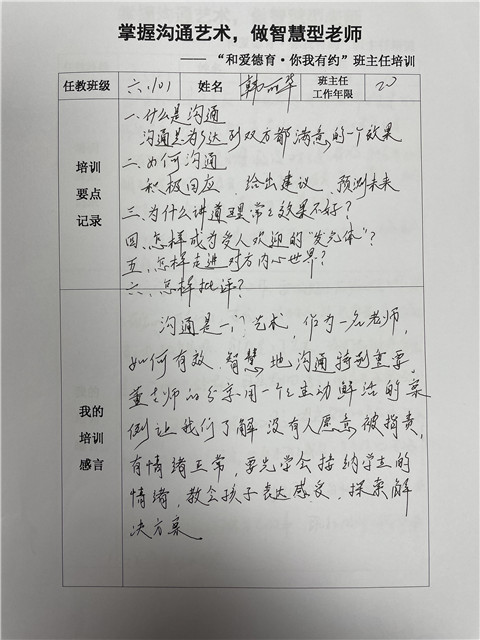 掌握沟通艺术，做智慧型老师
—— “和爱德育·你我有约”班主任培训
任教班级 六.101 姓名 韩 华 班主任工作年限 20
培训要点记录
一、什么是沟通
沟通是为了达到双方都满意的一个效果
二、如何沟通
积极回应 给出建议 、预测未来
三、为什么讲道理常常效果不好？
四、怎样成为受人欢迎的“发光体”？
五、怎样走进对方内心世界？
六、怎样批评？
我的培训感言
沟通是一门艺术，作为一名老师，
如何有效、智慧地沟通特别重要，
董老师的分享用一个个生动鲜活的案
例让我们了解没有人愿意被指责，
有情绪正常，要先学会接纳学生的
情绪，教会孩子表达感受，探索解
决方案。